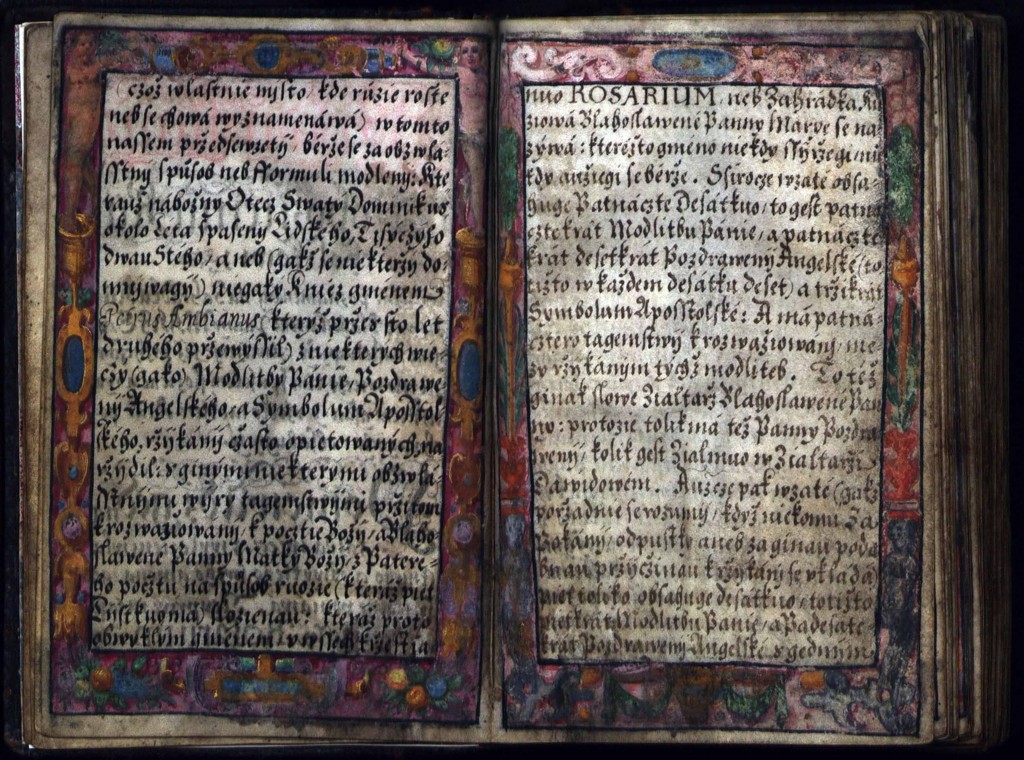 (czož wlastnie mysto, kde ruzie roste
neb se chowa wyznamenáwá) w tomto
nassem předsewzetý, béřže se za obzwla=
sstný spusob neb fformuli modleny: Kte
rauž nábožny Otecz Swatý Dominikus
okolo Leta spaseny Lidskeho, Tisyczyho
dwau Stého, aneb (gakž se niekteržy do=
mnywagy) niegaky Kniez gmenem
Petrus Ambianus (kterýž pržes sto let
druheho pržewyssil) z niekterych wie=
czy (gako) Modlitby Pánie, Pozdrawe
ny Angelskeho, a Symbolum Aposstol=
ského, ržykány cžasto opietowaných na=
ržydil: s ginymi niekterymi obzwlá=
sstnymi wýry tagemstwymi pržitom
k rozwažiowany, k pocztie Božy, a Blaho=
slawené Panny Matky Božy, z Patere=
ho pocztu na spusob ruozie (kteraž piet
Lystkuo má) Rozienau: kteraž proto
obwyklym gmenem w wssech krzestia
nuo ROSARIUM, neb Zahradka Ru
ziowá Blahoslawené Panny Marye se na=
zýwá: kterežto gméno niekdy ssyržegi nie
kdy aužiegi se béřže. Ssirocze wzaté obsa=
huge Patnáczte Desátkuo, to gest patná
cztekrát Modlitbu Pánie, a patnáczte
krát desetkrat Pozdraweny Angelské (to
tižto w každem desátku deset) a tržikrát
Symbolum Aposstolské: A má patná=
cztero tagemstwý k rozwažiowany, me=
zy ržykanym tychž modliteb. To též
ginak slowe Žialtarž Blahoslawené Pan
ny: protozie tolik má též Panny Pozdra
weny, kolik gest Žialmuo w Žialtarži
Dawidowem. Auzcze pak wzaté (gakž
poržadnie se rozumy, když niekomu Za
Pokány, odpustky aneb za ginau podo
bnau pržycžinau k ržykany se vkladá
piet toliko obsahuge desátkuo, totižto
pietkrát Modlitbu Pánie, a Padesáte
krát Pozdraweny Angelské s gednim